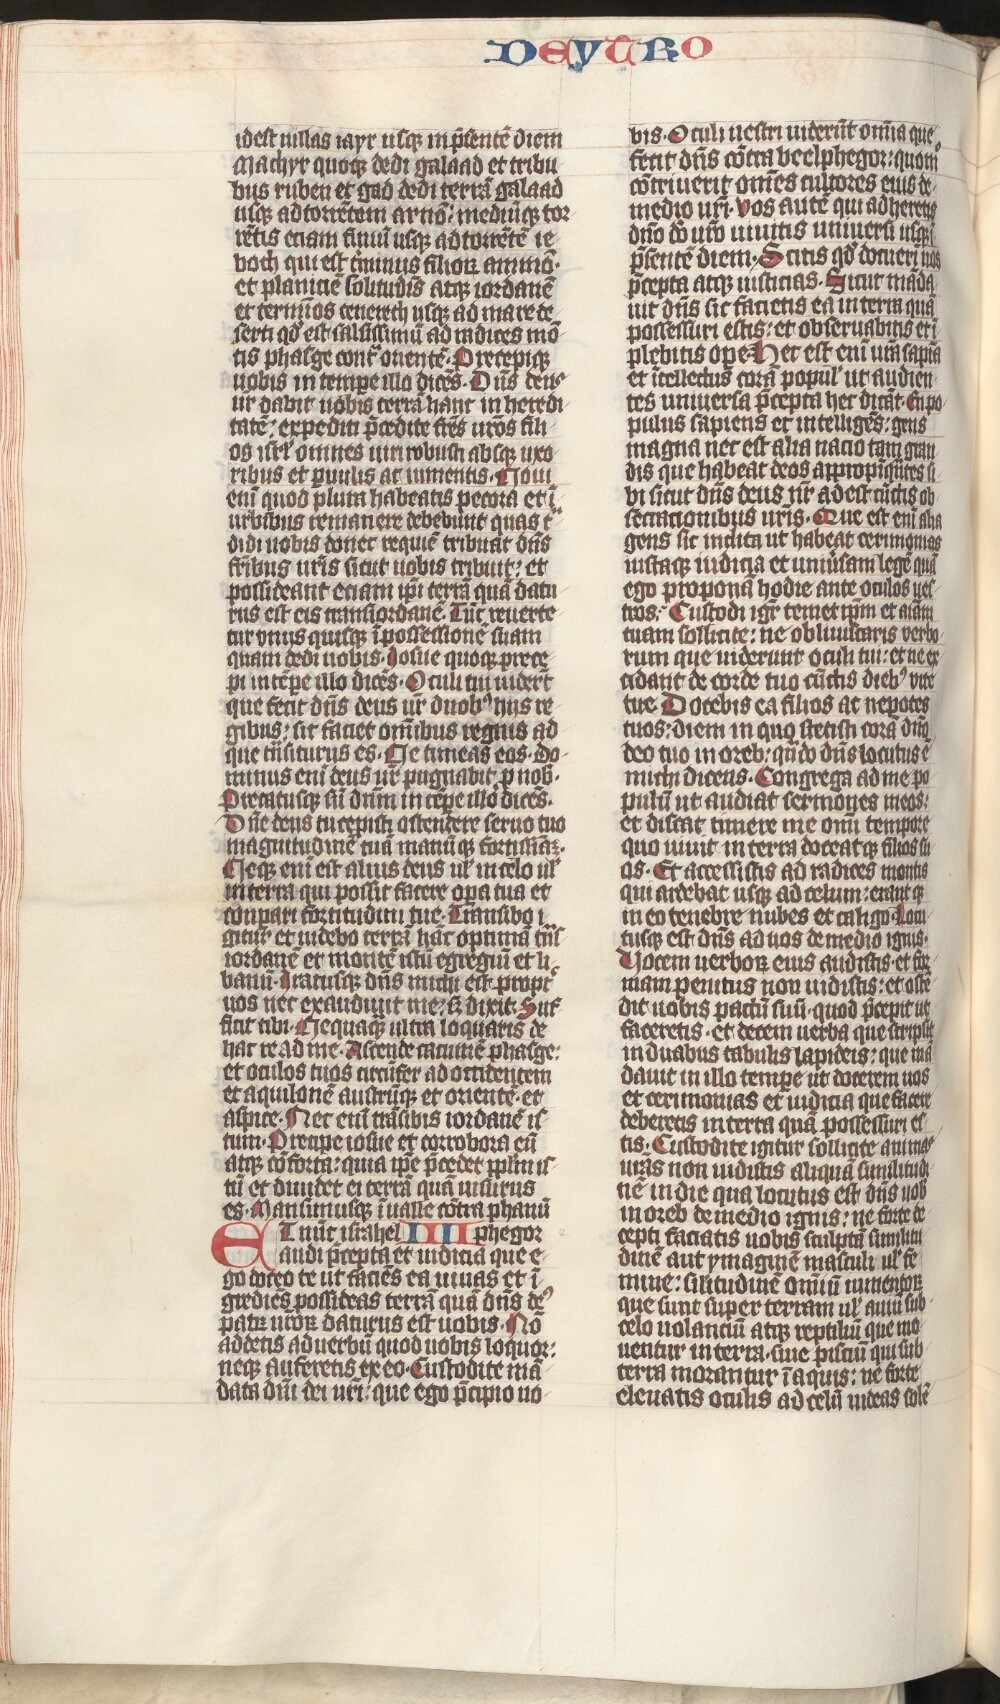 DEVTRO
idest uillas iayr usq̄ in p̄sentē diem
Machyr quoq̄ dedi galaad et tribu
bus ruben et gad dedi terrā galaad
usq̄ ad torrētem arnō: mediūq̄ tor
rētis eciam finiū usq̄ ad torrētē ie
boch qui est t̄minus filioꝝ ammō·
et planiciē solitudīs atq̄ iordanē
et termīos cenereth usq̄ ad mare de
serti qd̄ est salsissimū ad radices mō
tis phasge cont̄ orientē· Precepiq̄
uobis in tempe illo dicēs· Dn̄s deus
ur̄ dabit uobis terrā hanc in heredi
tatē: expediti p̄cedite frēs ur̄os fili
os isrl̄ omnes uiri robusti absq̄ uxo
ribus et ꝑuulis ac iumentis· Noui
enī quod plura habeatis pecora et ī
urbibus remanere debebunt quas t̄
didi uobis donec requiē tribuat dn̄s
fr̄ibus ur̄is sicut uobis tribuit: et
possideant eciam ip̄i terrā quā datu
rus est eis transiordanē· Tūc reuerte
tur vnus quisq̄ ī possessionē suam
quam dedi uobis· Iosue quoq̄ prece
pi in tēpe illo dicēs· Oculi tui uidert̄
que fecit dn̄s deus ur̄ duobꝰ hijs re
gibus: sic faciet om̄ibus regnis ad
que trn̄siturus es· Ne timeas eos· Do
minus enī deus ur̄ pugnabit ꝓ nob̄·
Precatusq̄ sū dn̄m in tēpe illo dicēs·
Dn̄e deus tu cepisti ostendere seruo tuo
magnitudinē tuā manūq̄ fortissimā·
Neq̄ enī est alius deus ul̄ in celo ul̄
in terra qui possit facere oꝑa tua et
conpari fortitudini tue· Transibo i
gitur et uidebo terrā hāc optimā trn̄s
iordanē et montē istū egregiū et li
banū· Iratusq̄ dn̄s michi est propt̄
uos nec exaudiuit me: s̄ dixit· Suf
ficit tibi· Nequaq̄ ultra loquaris de
hac re ad me· Ascende cacumē phasge:
et oculos tuos circūfer ad occidentem
et aquilonē austrūq̄ et orientē· et
aspice· Nec enī trāsibis iordanē is
tum· Precipe iosue et corrobora eū
atq̄ cōforta: quia ip̄e p̄cedet pp̄lm is
tū et diuidet ei terrā quā uisurus
es· Mansimusq̄ ī ualle cōtra phanū
Et nūc israhel IIII phegor
audi p̄cepta et iudicia que e·
go doceo te ut faciēs ea uiuas et ī
grediēs possideas terrā quā dn̄s dꝰ
patꝝ ur̄oꝝ daturus est uobis· Nō
addetis ad uerbū quod uobis loquor:
neq̄ auferetis ex eo· Custodite mā
data dn̄i dei ur̄i: que ego p̄cipio uo·
bis· Oculi uestri uiderūt om̄ia que
fecit dn̄s cōtra beelphegor: quom̄
cōtriuerit om̄es cultores eius de
medio ur̄i· Vos autē qui adheretis
dn̄o do ur̄o uiuitis uniuersi usq̄ ī
p̄sentē diem· Scitis qd̄ docueri uos
p̄cepta atq̄ iusticias· Sicut mādā
uit dn̄s sic facietis ea in terra quā
possessuri estis: et obseruabitis et ī
plebitis ope· Hec est enī ur̄a sapīa
et ītellectus corā popul̄ ut audien
tes uniuersa p̄cepta hec dicāt· En po
pulus sapiens et intelligēs: gens
magna nec est alia nacio tam gran
dis que habeat deos appropīquātes si
bi sicut dn̄s deus nr̄ adest cūctis ob
secracionibus ur̄is· Que est enī alia
gens sic inclita ut habeat cerimonias
iustaq̄ iudicia et uniūsam legē quā
ego proponā hodie ante oculos ues
tros· Custodi igr̄ temet ip̄m et aīam
tuam sollicite: ne obliuiscaris verbo·
rum que uiderunt oculi tui: et ne ex
cidant de corde tuo cūctis diebꝰ vite
tue· Docebis ea filios ac nepotes
tuos: diem in quo stetisti corā dn̄o
deo tuo in oreb: qn̄do dn̄s locutus ē
michi dicens· Congrega ad me po
pulū ut audiat sermones meos:
et discat timere me omī tempore
quo uiuit in terra doceatq̄ filios su
os· Et accessistis ad radices montis
qui ardebat usq̄ ad celum: erantq̄
in eo tenebre nubes et caligo· Locu
tusq̄ est dn̄s ad uos de medio ignis·
Vocem uerboꝝ eius audistis· et for
mam penitus non uidistis: et ostē
dit uobis pactū suū· quod p̄cepit ut
faceretis· et decem uerba que scripsit
in duabus tabulis lapideis: que mā
dauit in illo tempe ut docerem uos
et cerimonias et iudicia que facere
deberetis in terra quā possessuri es
tis· Custodite igitur sollicite animas
ur̄as non uidistis aliquā similitudi
nē in die qua locutus est dn̄s uob̄
in oreb de medio ignis: ne forte de
cepti faciatis uobis sculptā similitu
dinē aut ymaginē masculi ul̄ fe
mine: silitudinē om̄iū iumentoꝝ
que sunt super terram ul̄ auiū sub·
celo uolanciū atq̄ reptiliū que mo
uentur in terra· siue pisciū qui sub·
terra morantur ī aquis: ne forte
eleuatis oculis ad celū uideas solē